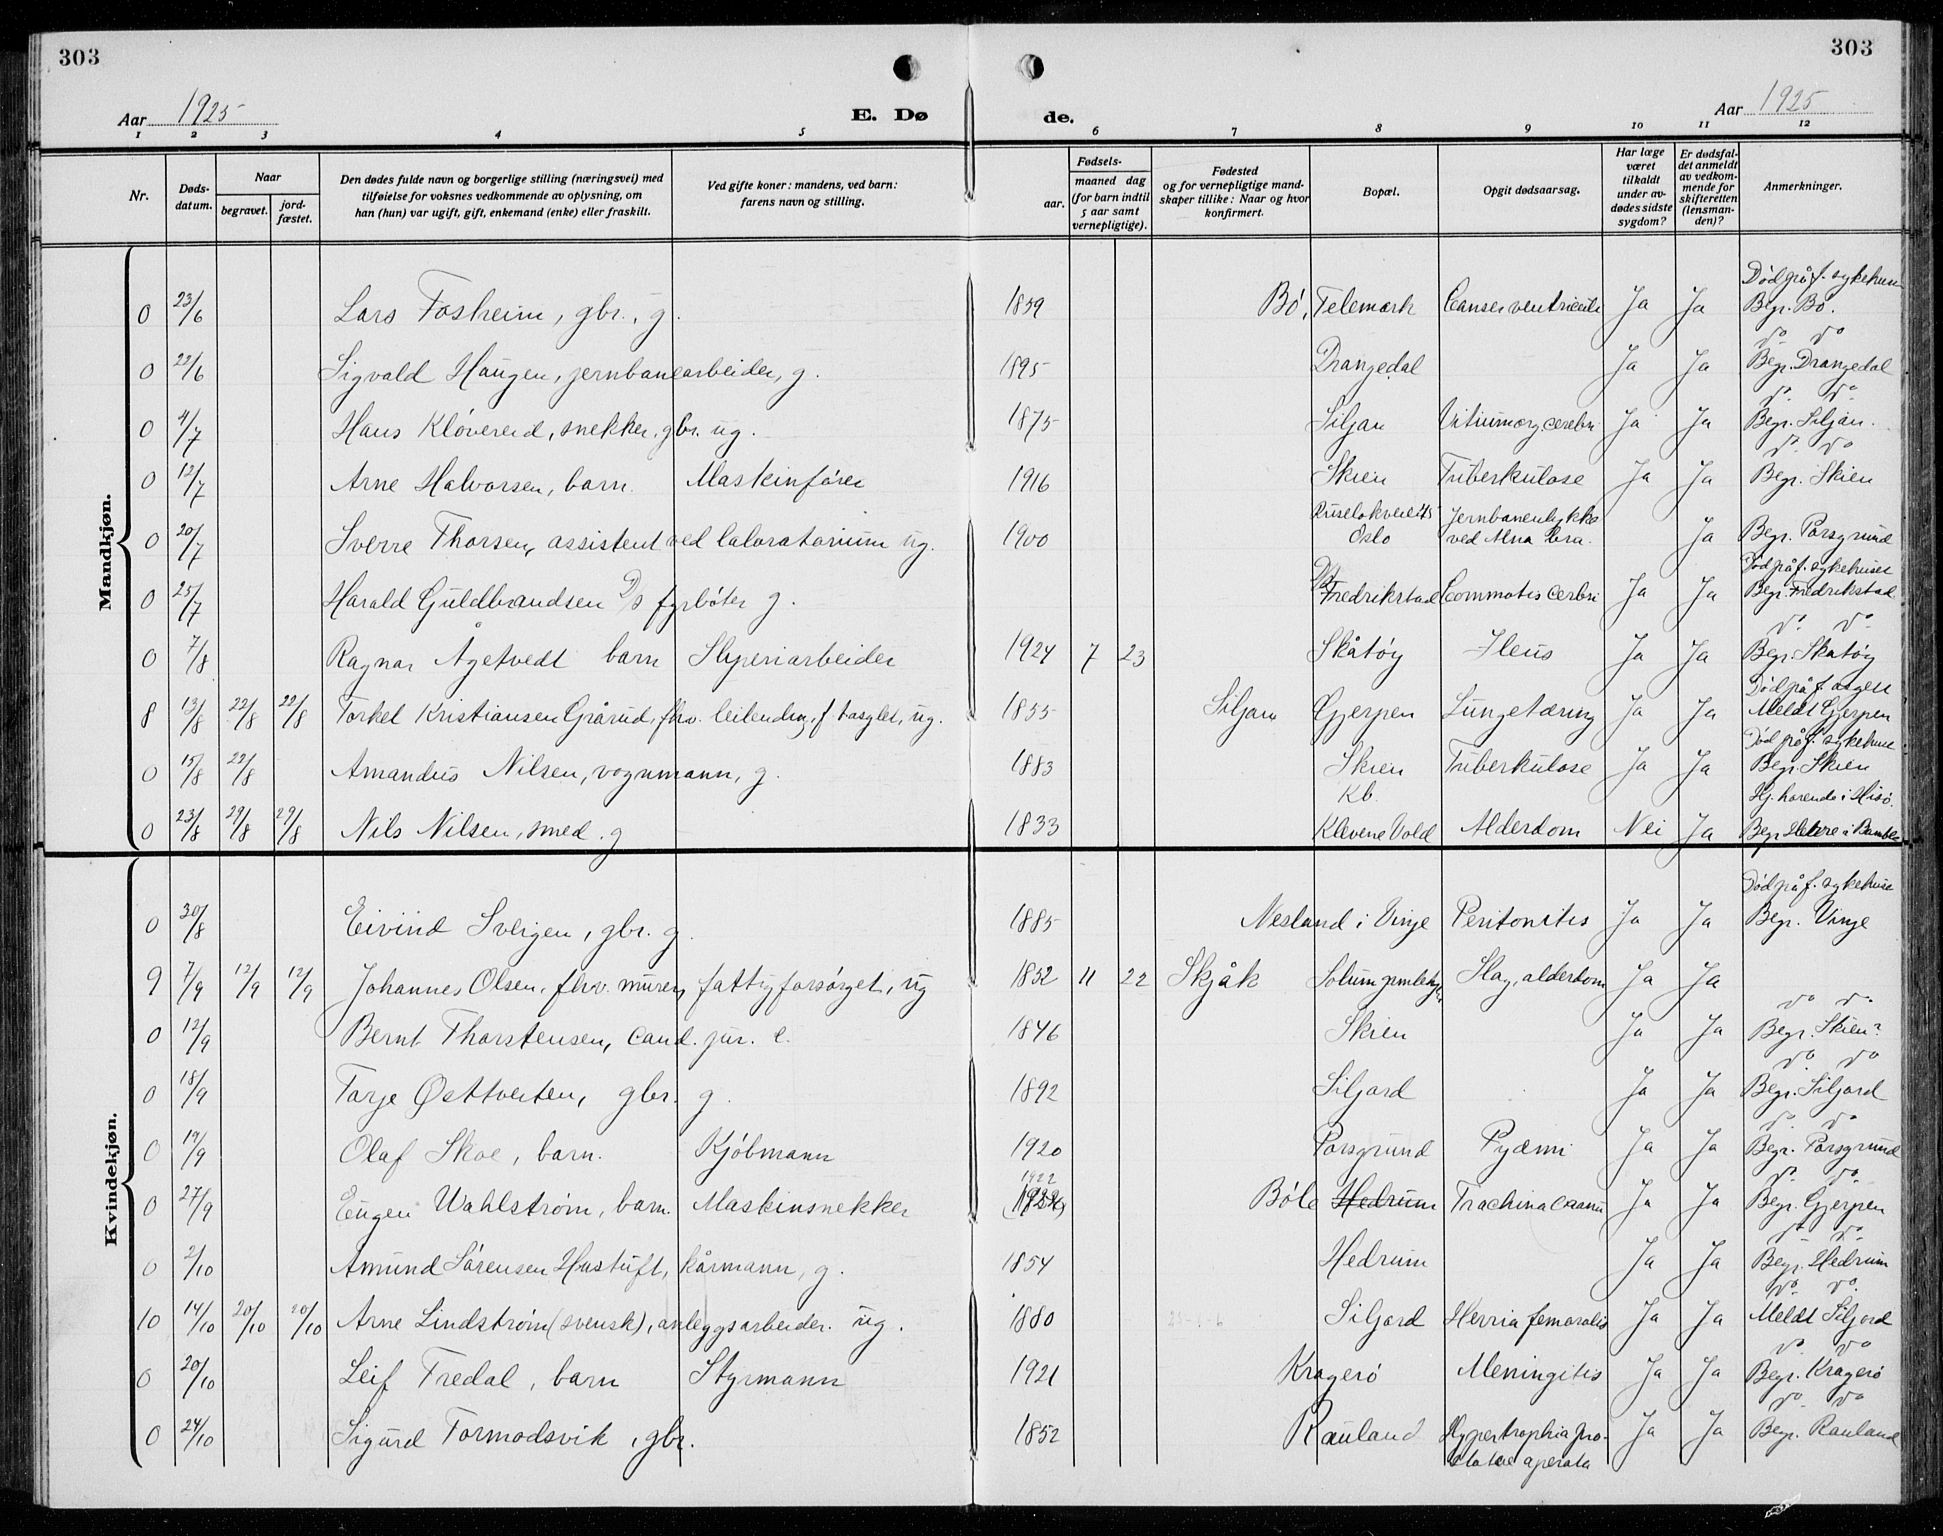 303
303
Aar 1925
E. Dø
de.
Aar 1925
1 2 3 4 5 6 7 8 9 10 11 12
Nr.
Døds-
datum.
Naar
begravet.
jord-
fæstet.
Den dødes fulde navn og borgerlige stilling (næringsvei) med
tilføielse for voksnes vedkommende av oplysning, om
han (hun) var ugift, gift, enkemand (enke) eller fraskilt.
Ved gifte koner: mandens, ved barn:
farens navn og stilling.
Fødsels-
aar.
maaned dag
(for barn indtil
5 aar samt
vernepligtige).
Fødested
og for vernepligtige mand-
skaper tillike: Naar og hvor
konfirmert.
Bopæl.
Opgit dødsaarsag.
Har læge
været
tilkaldt
under av-
dødes sidste
sygdom?
Er dødsfal-
det anmeldt
av vedkom-
mende for
skifteretten
(lensman-
den)?
Anmerkninger.
Mandkjøn.
Død på f. sykehus
0 23/6 Lars Fosheim, gbr., g. 1839 Bø, Telemark Canser ventriculi Ja Ja Begr. Bø.
do do
0 22/6 Sigvald Haugen, jernbanearbeider, g. 1895 Drangedal Ja Ja Begr. Drangedal
do do
0 4/7 Hans Kløvereid, snekker, gbr. ug. 1875 Siljan Vitium org. cerebri Ja Ja Begr. Siljan.
do do
0 12/7 Arne Halvorsen, barn. Maskinfører 1916 Skien Tuberkulose Ja Ja Begr. Skien
0 20/7 Sverre Thorsen, assistent ved laboratorium ug. 1900 Oslo Jernbaneulykke
ved Alna bru. Ja Begr. Porsgrund
Død på f. sykehuset
0 25/7 Harald Guldbrandsen D/S fyrbøter g. Fredrikstad Commotis cerbri Ja Ja Begr. Fredrikstad
do do
0 7/8 Ragnar Ågetvedt barn Sliperiarbeider 1924 7 23 Skåtøy Ileus Ja Ja Begr. Skåtøy
0 Død på f.
8 13/8 22/8 22/8 Torkel Kristiansen Grårud, fhv. leilending, ug. 1855 Siljan Gjerpen Lungetæring Ja Ja Meldt Gjerpen
Død på f. sykehus
0 15/8 22/8 Amandus Nilsen, vognmann, g. 1883 Skien Tuberkulose Ja Ja Begr. Skien
Kb. Hj. hørende i Hisø.
0 23/8 29/8 29/8 Nils Nilsen, smed. g 1833 Klevene Vold Alderdom Nei Ja Begr i Bamble
Kvindekjøn.
Død på f. sykehuse
0 30/8 Eivind Sveigen, gbr. g 1885 Nesland i Vinje Peritonitis Ja Ja Begr. Vinje
9 7/9 12/9 12/9 Johannes Olsen, fhv. murer, fattigforsørget, ug 1852 11 22 Skjåk Solum gamlehj. Slag, alderdom Ja Ja
do do
0 12/9 Bernt Thorstensen, cand. jur. e. 1846 Skien Ja Ja Begr. Skien?
do do
0 18/9 Tarje Østtveiten, gbr. g 1892 Siljord Ja Ja Begr. Siljord
do do
0 19/9 Olaf Skoe, barn. Kjøbmann 1920 Porsgrund Pyæmi Ja Ja Begr. Porsgrund
1922 do do
0 27/9 Eugen Wahlstrøm, barn. Maskinsnekker Bøle Hedrum Ja Ja Begr. Gjerpen
do do
0 2/10 Amund Sørensen Hustuft, kårmann, g. 1854 Hedrum Ja Ja Begr. Hedrum
do do
10 14/10 20/10 20/10 Arne Lindstrøm (svensk), anleggsarbeider. ug. 1880 Siljord Herria femoralis Ja Ja Meldt Siljord
do do
0 20/10 Leif Fredal, barn Styrmann 1921 Kragerø Meningitis Ja Ja Begr. Kragerø
do do
0 24/10 Sigurd Tormodsvik, gbr. 1852 Rauland Hypertrophia pro-
statae operata Ja Ja Begr. Rauland